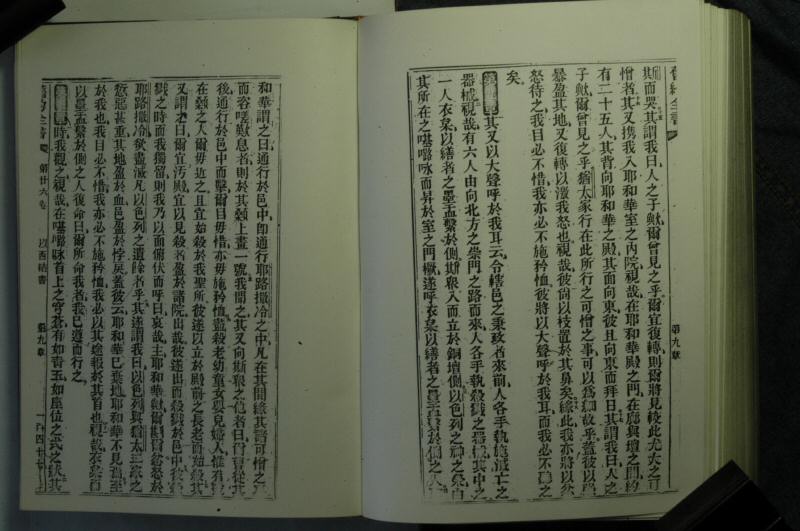 舊約全書
第九章
斯而哭其謂我曰人之子歟爾曾見之乎爾宜復轉則爾將見較此尤大之可
憎者其又攜我入耶和華室之內院視哉在耶和華殿之門在廊與壇之間約
有二十五人其背向耶和華之殿其面向東彼且向東而拜日其謂我曰人之
子歟爾曾見之乎猶太家行在此所行之可憎之事可以為細故乎蓋彼以
暴盈其地又復轉以激我怒也視哉彼尚以枝置於其鼻矣緣此我亦將以忿
怒待之我目必不惜我亦必不施矜恤彼將以大聲呼於我耳而我必不聽之
矣
其又以大聲呼於我耳云令轄邑之秉政者來前人各手執施滅亡之
器械視哉有六人由向北方之崇門之路而來人各手執殺戮之器械其中之
一人衣枲以繕者之墨盂繫於側斯眾入而立於銅壇側以色列之神之榮自
其所在之𠼻𡀔咏而昇於室之門檻遂呼衣枲以繕者之墨盂繫於側之人
和華謂之曰通行於邑中即通行耶路撒冷之中凡在其間緣其諸可憎之
而容嗟歎息者則於其顙上畫一號我聞之其又向斯眾之他者曰爾曹從其
後通行於邑中而擊爾目毋惜亦毋施矜恤盡殺老幼童女嬰兒婦人惟有
在顙之人爾毋近之且宜始於我聖所彼遂以立於殿前之長老而始焉其
又謂之曰爾宜污殿宜以見殺者盈於諸院出哉彼遂出而殺戮於邑中
戮之時而我獨留則我乃以面俯伏而呼曰哀哉主耶和華歟爾斟爾忿怒於
耶路撒冷欲盡滅凡以色列之遺餘者乎其遂謂我曰以色列與猶太家之
愆惡甚重其地盈於血邑盈於悖戾蓋彼云耶和華已棄地耶和華不見
於我也我目必不惜我亦必不施矜恤我必以其途報於其首也視哉衣枲而
以墨盂繫於側之人復命曰爾所命我者我已遵而行之
時我觀之視哉在𠼻𡀔咏首上之穹蒼有如青玉如座位之式之狀其
舊約全書
第廿六卷
以西結書
第九章